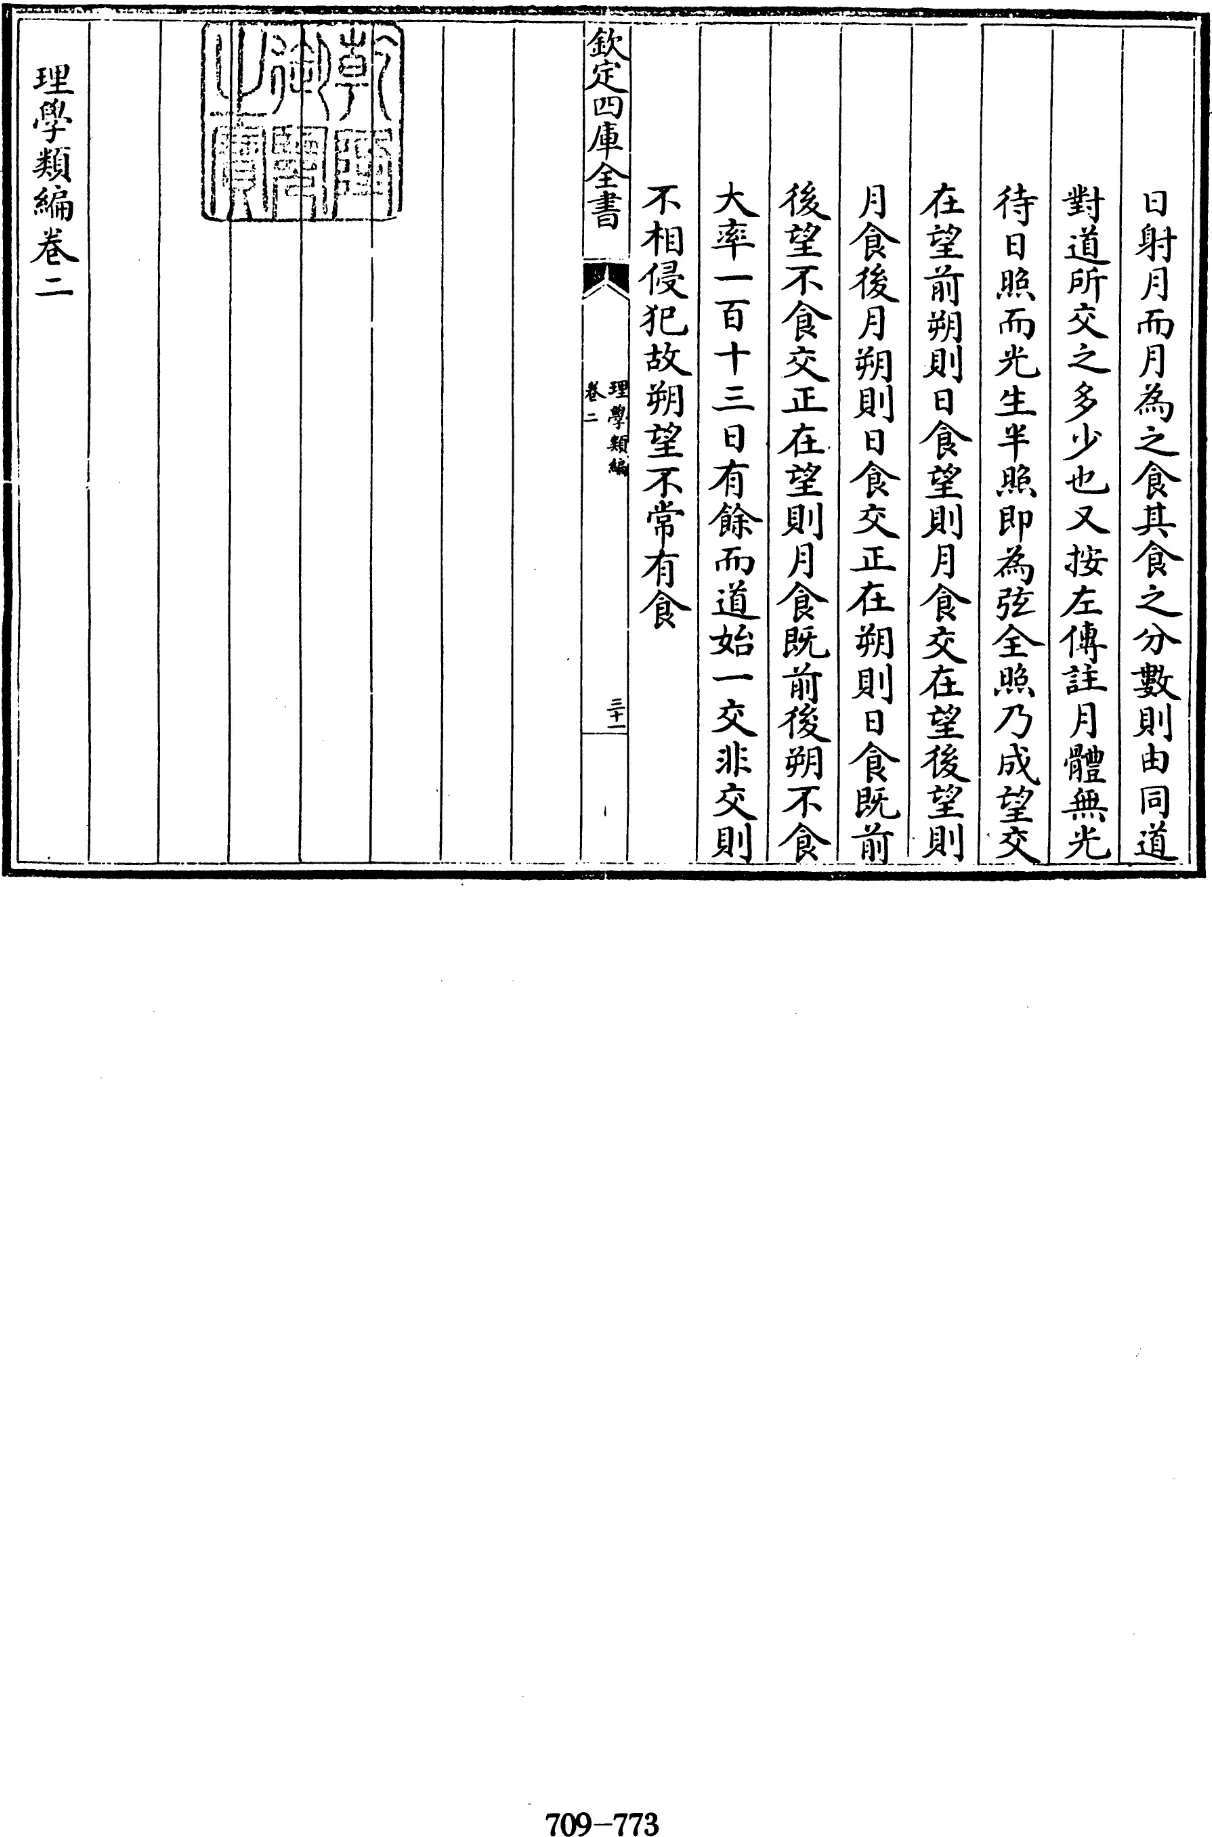 日射月而月為之食其食之分數則由同道
對道所交之多少也又按左傳註月體無光
待日照而光生半照即為弦全照乃成望交
在望前朔則日食望則月食交在望後望則
月食後月朔則日食交正在朔則日食既前
後望不食交正在望則月食既前後朔不食
大率一百十三日有餘而道始一交非交則
不相侵犯故朔望不常有食
欽定四庫全書
理學類編
卷二
三十一
乾隆御覽之寶
理學類編卷二
709-773